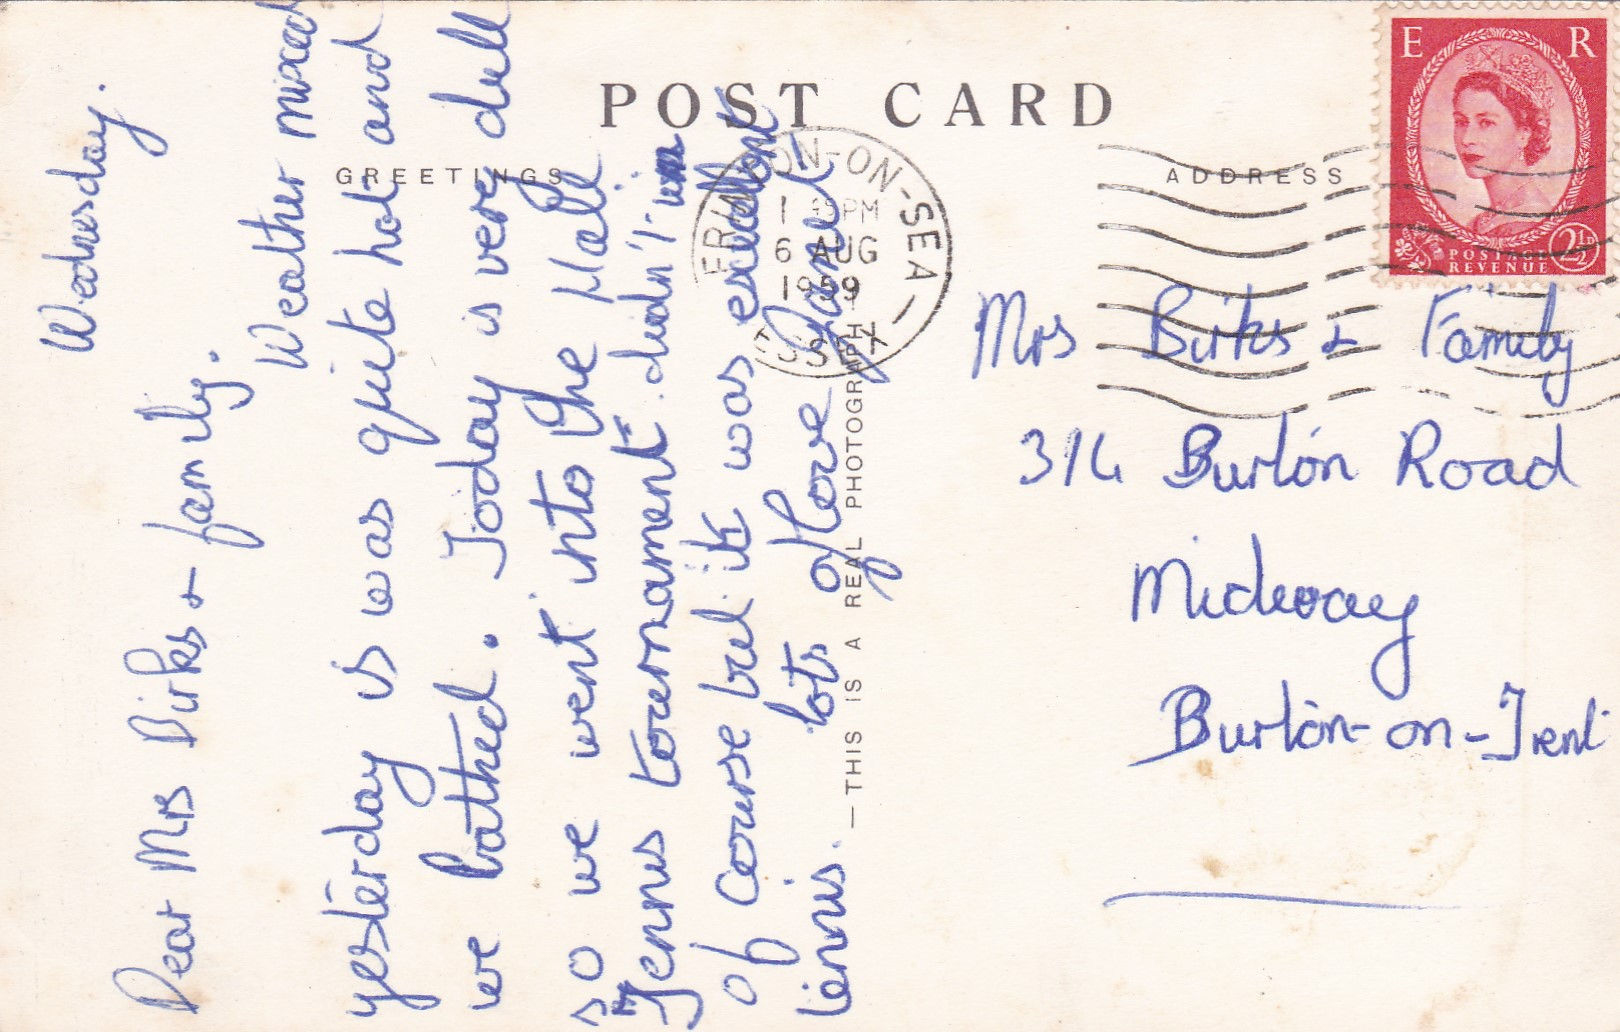 POST CARD
GREETINGS
ADDRESS
Wednesday.
Dear Mrs Birks + family.
Weather mixed
yesterday is was quite hot and
we bathed. Today is very dull
so we went into the
Tennis tournament. didn't
of course but it was excellent
tennis. lots of love Janet
— THIS IS A REAL PHOTOGRAPH
FRINTON-ON-SEA
PM
6 AUG
1959
ESSEX
E R
POSTAGE
REVENUE
2½D
Mrs Birks + Family
314 Burton Road
Midway
Burton-on-Trent